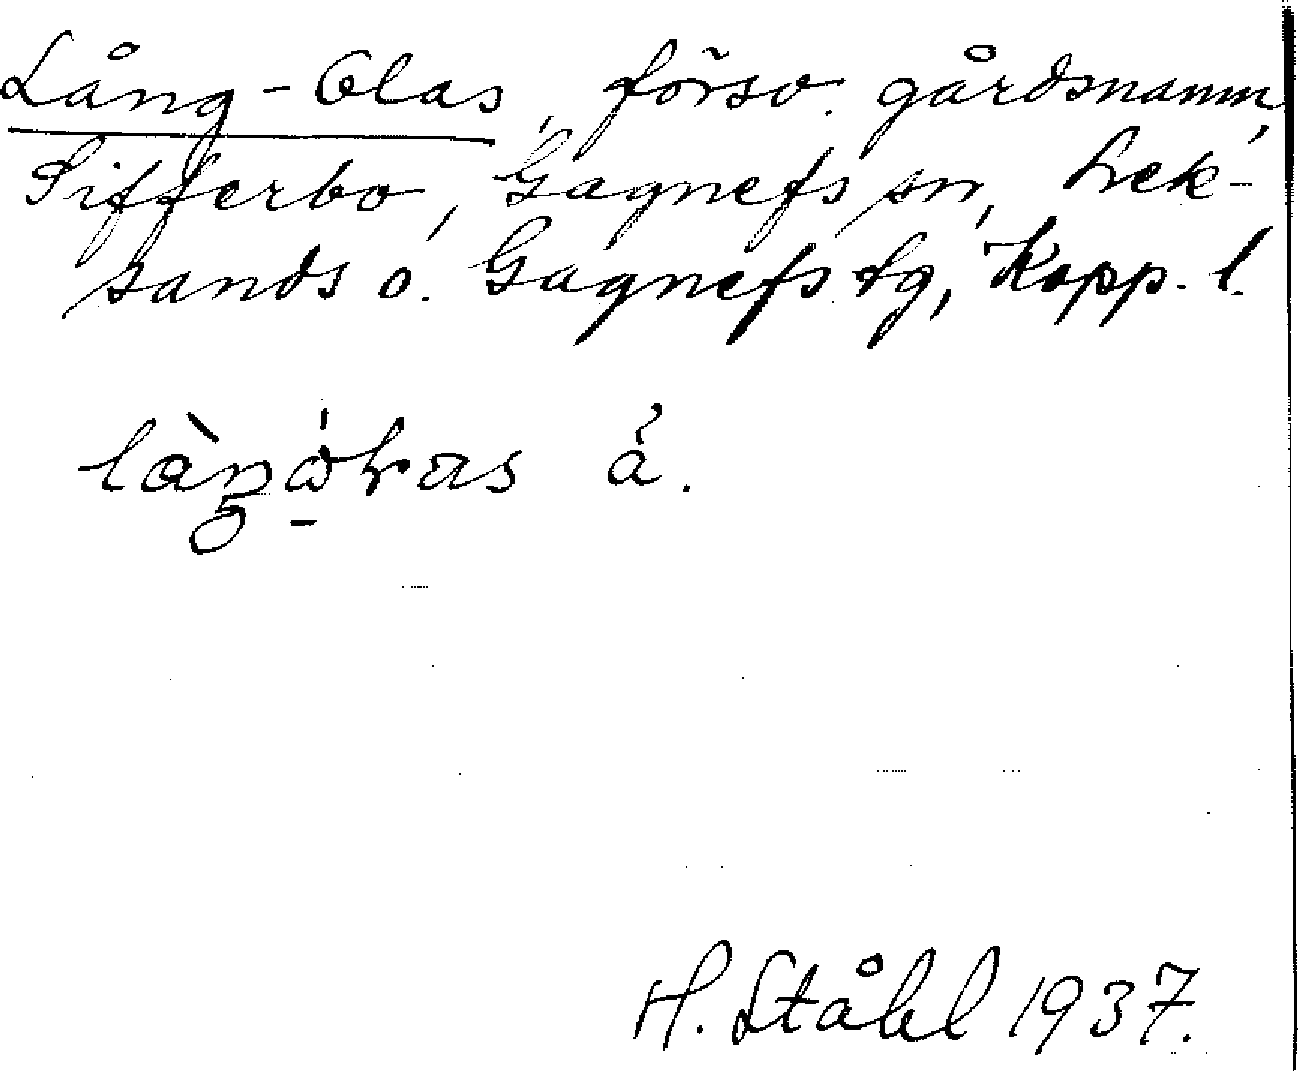 Lång-Olas, försv. gårdsnamn,
Sifferbo, Gagnefs sn, Lek-
sands o. Gagnefs tg, Kopp. l.
å.
H. Ståhl 1937.